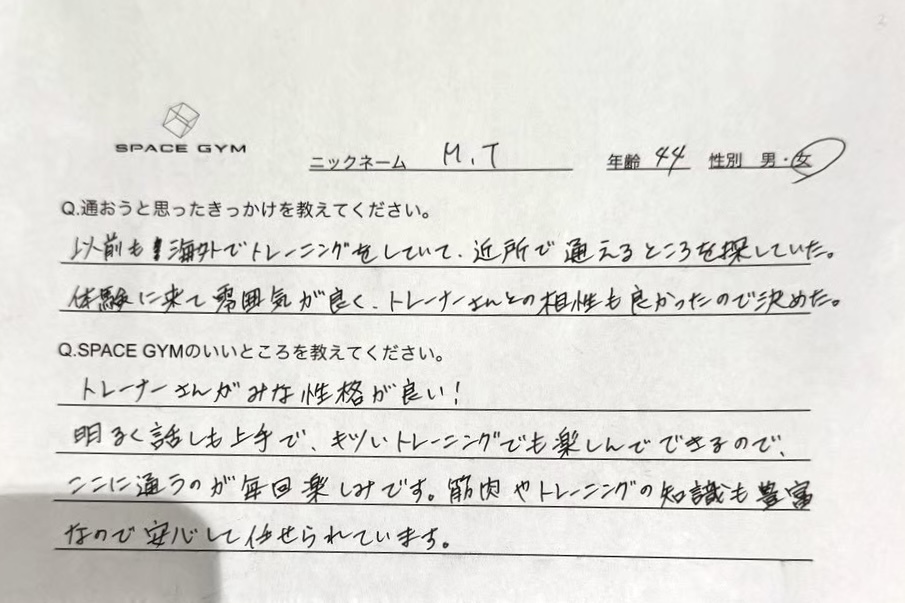 SPACE GYM
ニックネーム M.T 年齢 44 性別 男・女
Q.通おうと思ったきっかけを教えてください。
以前も海外でトレーニングをしていて、近所で通えるところを探していた。
体験に来て雰囲気が良く、トレーナーさんとの相性も良かったので決めた。
Q.SPACE GYMのいいところを教えてください。
トレーナーさんがみな性格が良い!
明るく話しも上手で、キツいトレーニングでも楽しんでできるので、
ここに通うのが毎回楽しみです。筋肉やトレーニングの知識も豊富
なので安心して任せられています。